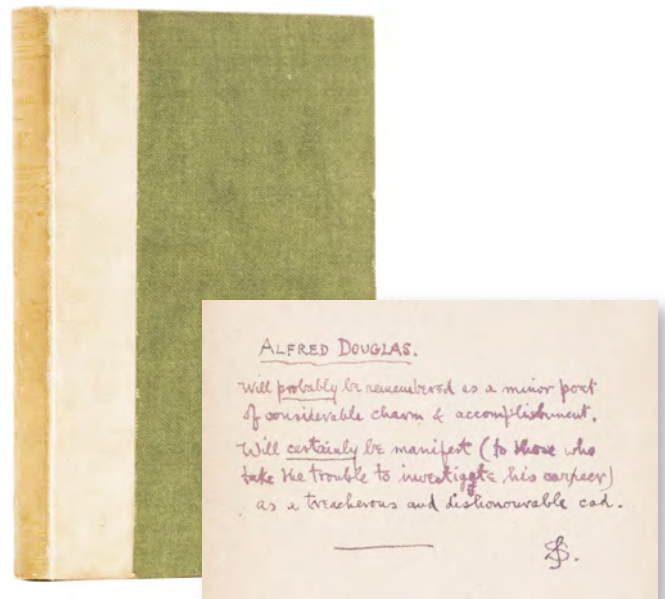 ALFRED DOUGLAS.
Will probably be remembered as a minor poet
of considerable charm & accomplishment.
Will certainly be manifest (to those who
take the trouble to investigate his career)
as a treacherous and dishonourable cad.